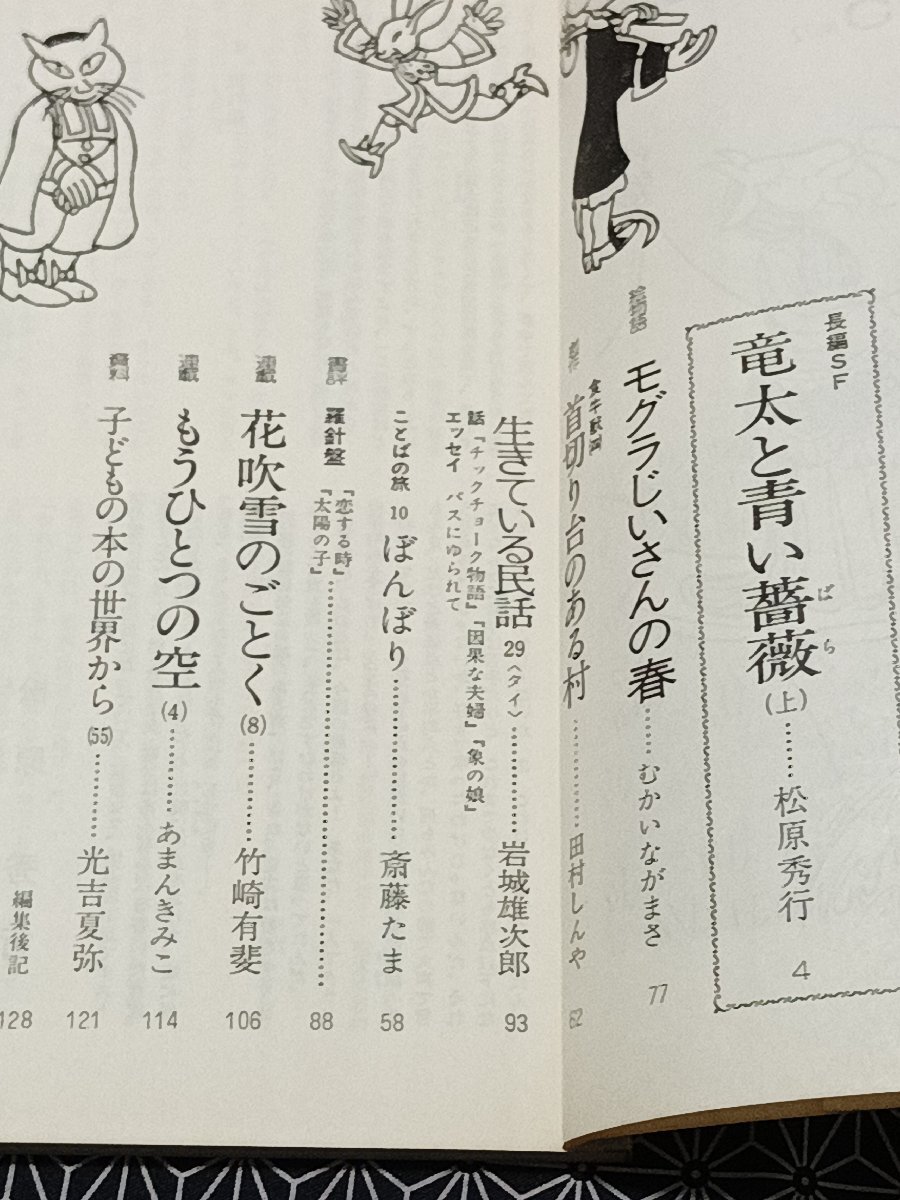 長編SF
竜太と青い薔薇（上）……松原秀行 4
ばら
絵物語 モグラじいさんの春……むかいながまさ 77
首切り台のある村…………田村しんや 62
生きている民話 29〈タイ〉…………岩城雄次郎 93
話『チックチョーク物語』『因果な夫婦』『象の娘』
エッセイ バスにゆられて
ことばの旅 10 ぼんぼり…………斎藤たま 58
書評 羅針盤 『恋する時』『太陽の子』………… 88
連載 花吹雪のごとく(8)…………竹崎有斐 106
連載 もうひとつの空(4)…………あまんきみこ 114
資料 子どもの本の世界から(55)…………光吉夏弥 121
編集後記 128